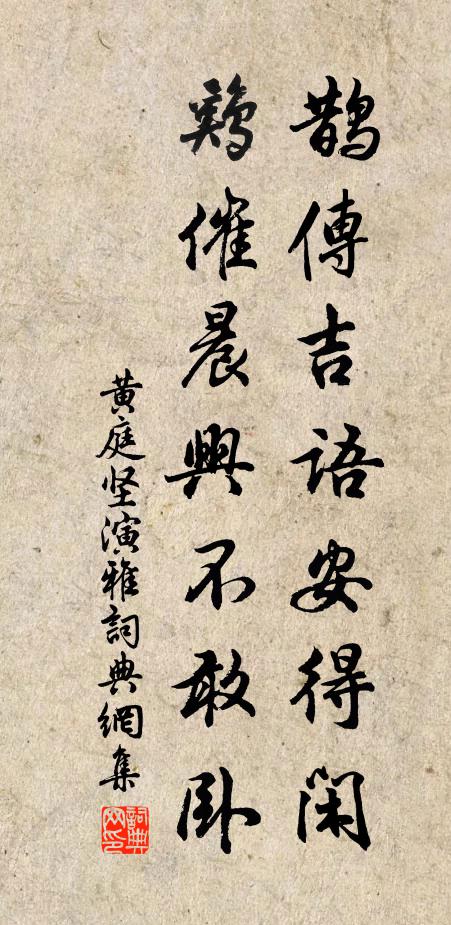 鵲傳吉語安得閑
鷄催晨興不敢卧
黄庭坚演雅詞典網集
詞典网印